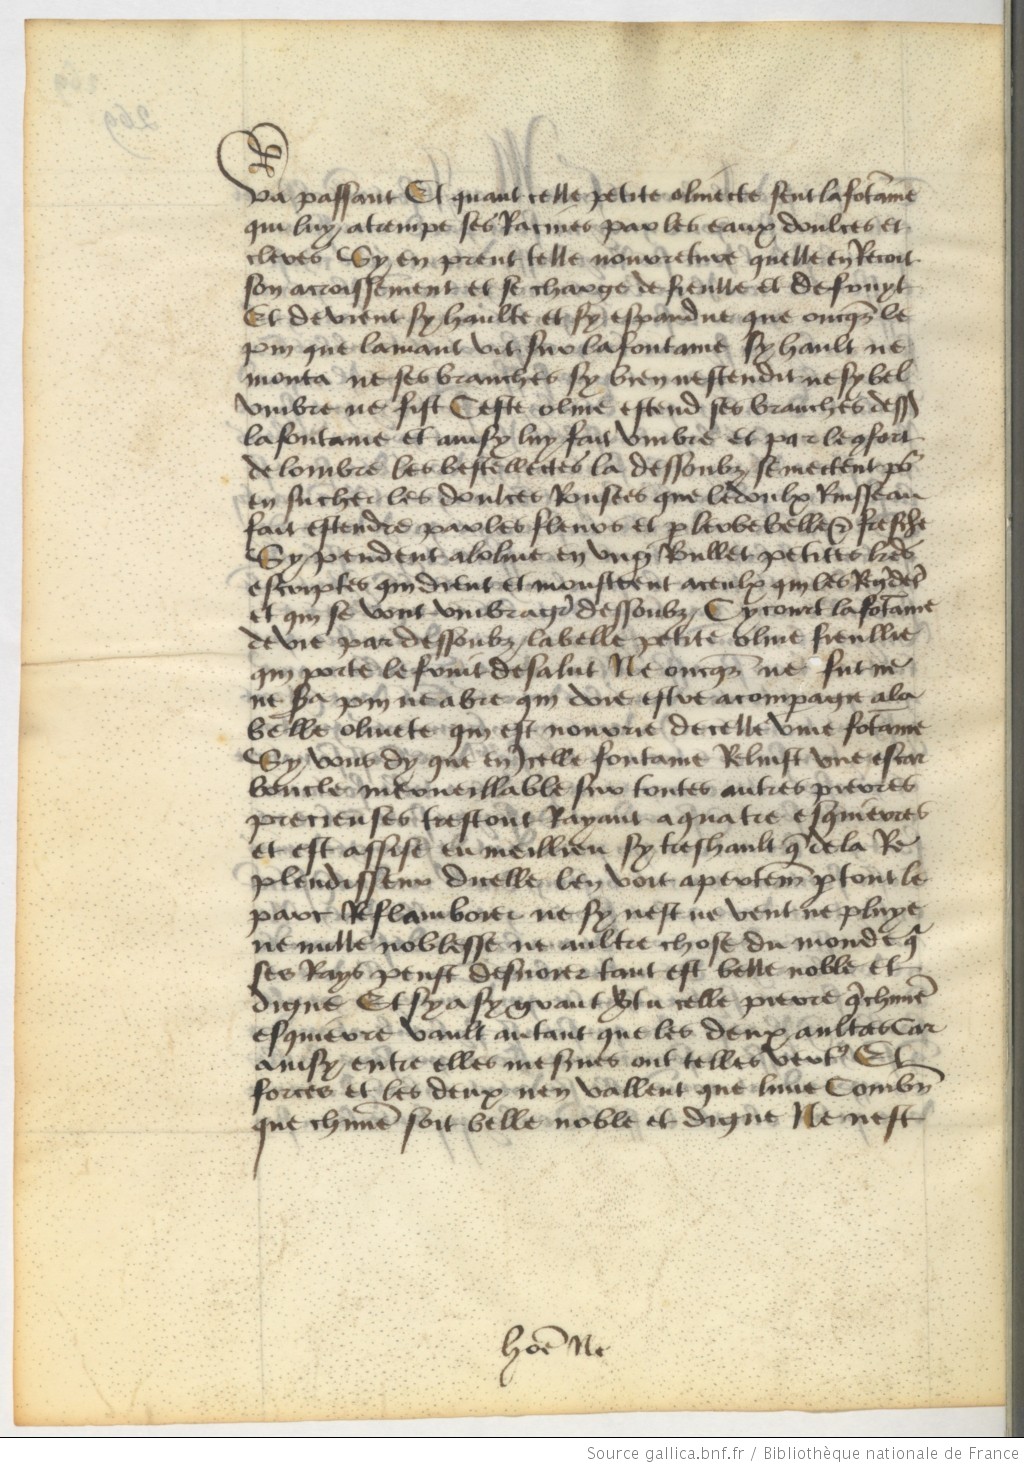 va passant Et quant celle petite oliuecte sent la fōtaine
qui luy atrempe ses Racines par les eaux doulces et
cleres Sy en prent telle nourreture quelle en Recoit
son acroissement et se charge de fieulle et de fruyt
Et deuient sy haulte et sy espandue que oncqs le
pin que lamant vit sur la fontaine sy hault ne
monta ne ses branches sy bien nestendit ne sy bel
vmbre ne fist Ceste oliue estend ses branches dess
la fontaine et ainsy luy fait vmbre et par le gfort
de lombre les bestellectes la dessoubz se mectent pō
en sucher les doulces Rousees que le doulx Ruisseau
fait estendre par les fleurs et p lerbe belle & fresche
Sy pendent a loliue en vng Rullet petites lrēs
escriptes qui dient et monstrent a ceulx qui les
et qui se vont vmbragr dessoubz Cy court la fōtaine
de vie par dessoubz la belle petite oliue fieullie
qui porte le fruit de salut Ne oncqs ne fut ne
ne sa pin ne abre qui doie estre acompagie a la
belle oliuete qui est nourrie de celle viue fōtaine
Sy vous dy que en Icelle fontaine Reluist vne escar
boucle merueillable sur toutes autres pierres
precieuses trestout Rayant a quatre esquierres
et est assise en meillieu sy tres hault q̄ de la Re
plendisseur dicelle len voit apertem̄ p tout le
parc Reflamboier ne sy nest ne vent ne pluye
ne nulle noblesse ne aultre chose du monde q̄
ses Rays peust desuoier tant est belle noble et
digne Et sy a sy grant vtu celle pierre q̄ chūne
esquierre vault autant que les deux aultres Car
ainsy entre elles mesmes ont telles vert9 Et
forces et les deux nen vallent que lune Combn̄
que chūne soit belle noble et digne Ne nest
hōe Ne
269
Source gallica.bnf.fr / Bibliothèque nationale de France